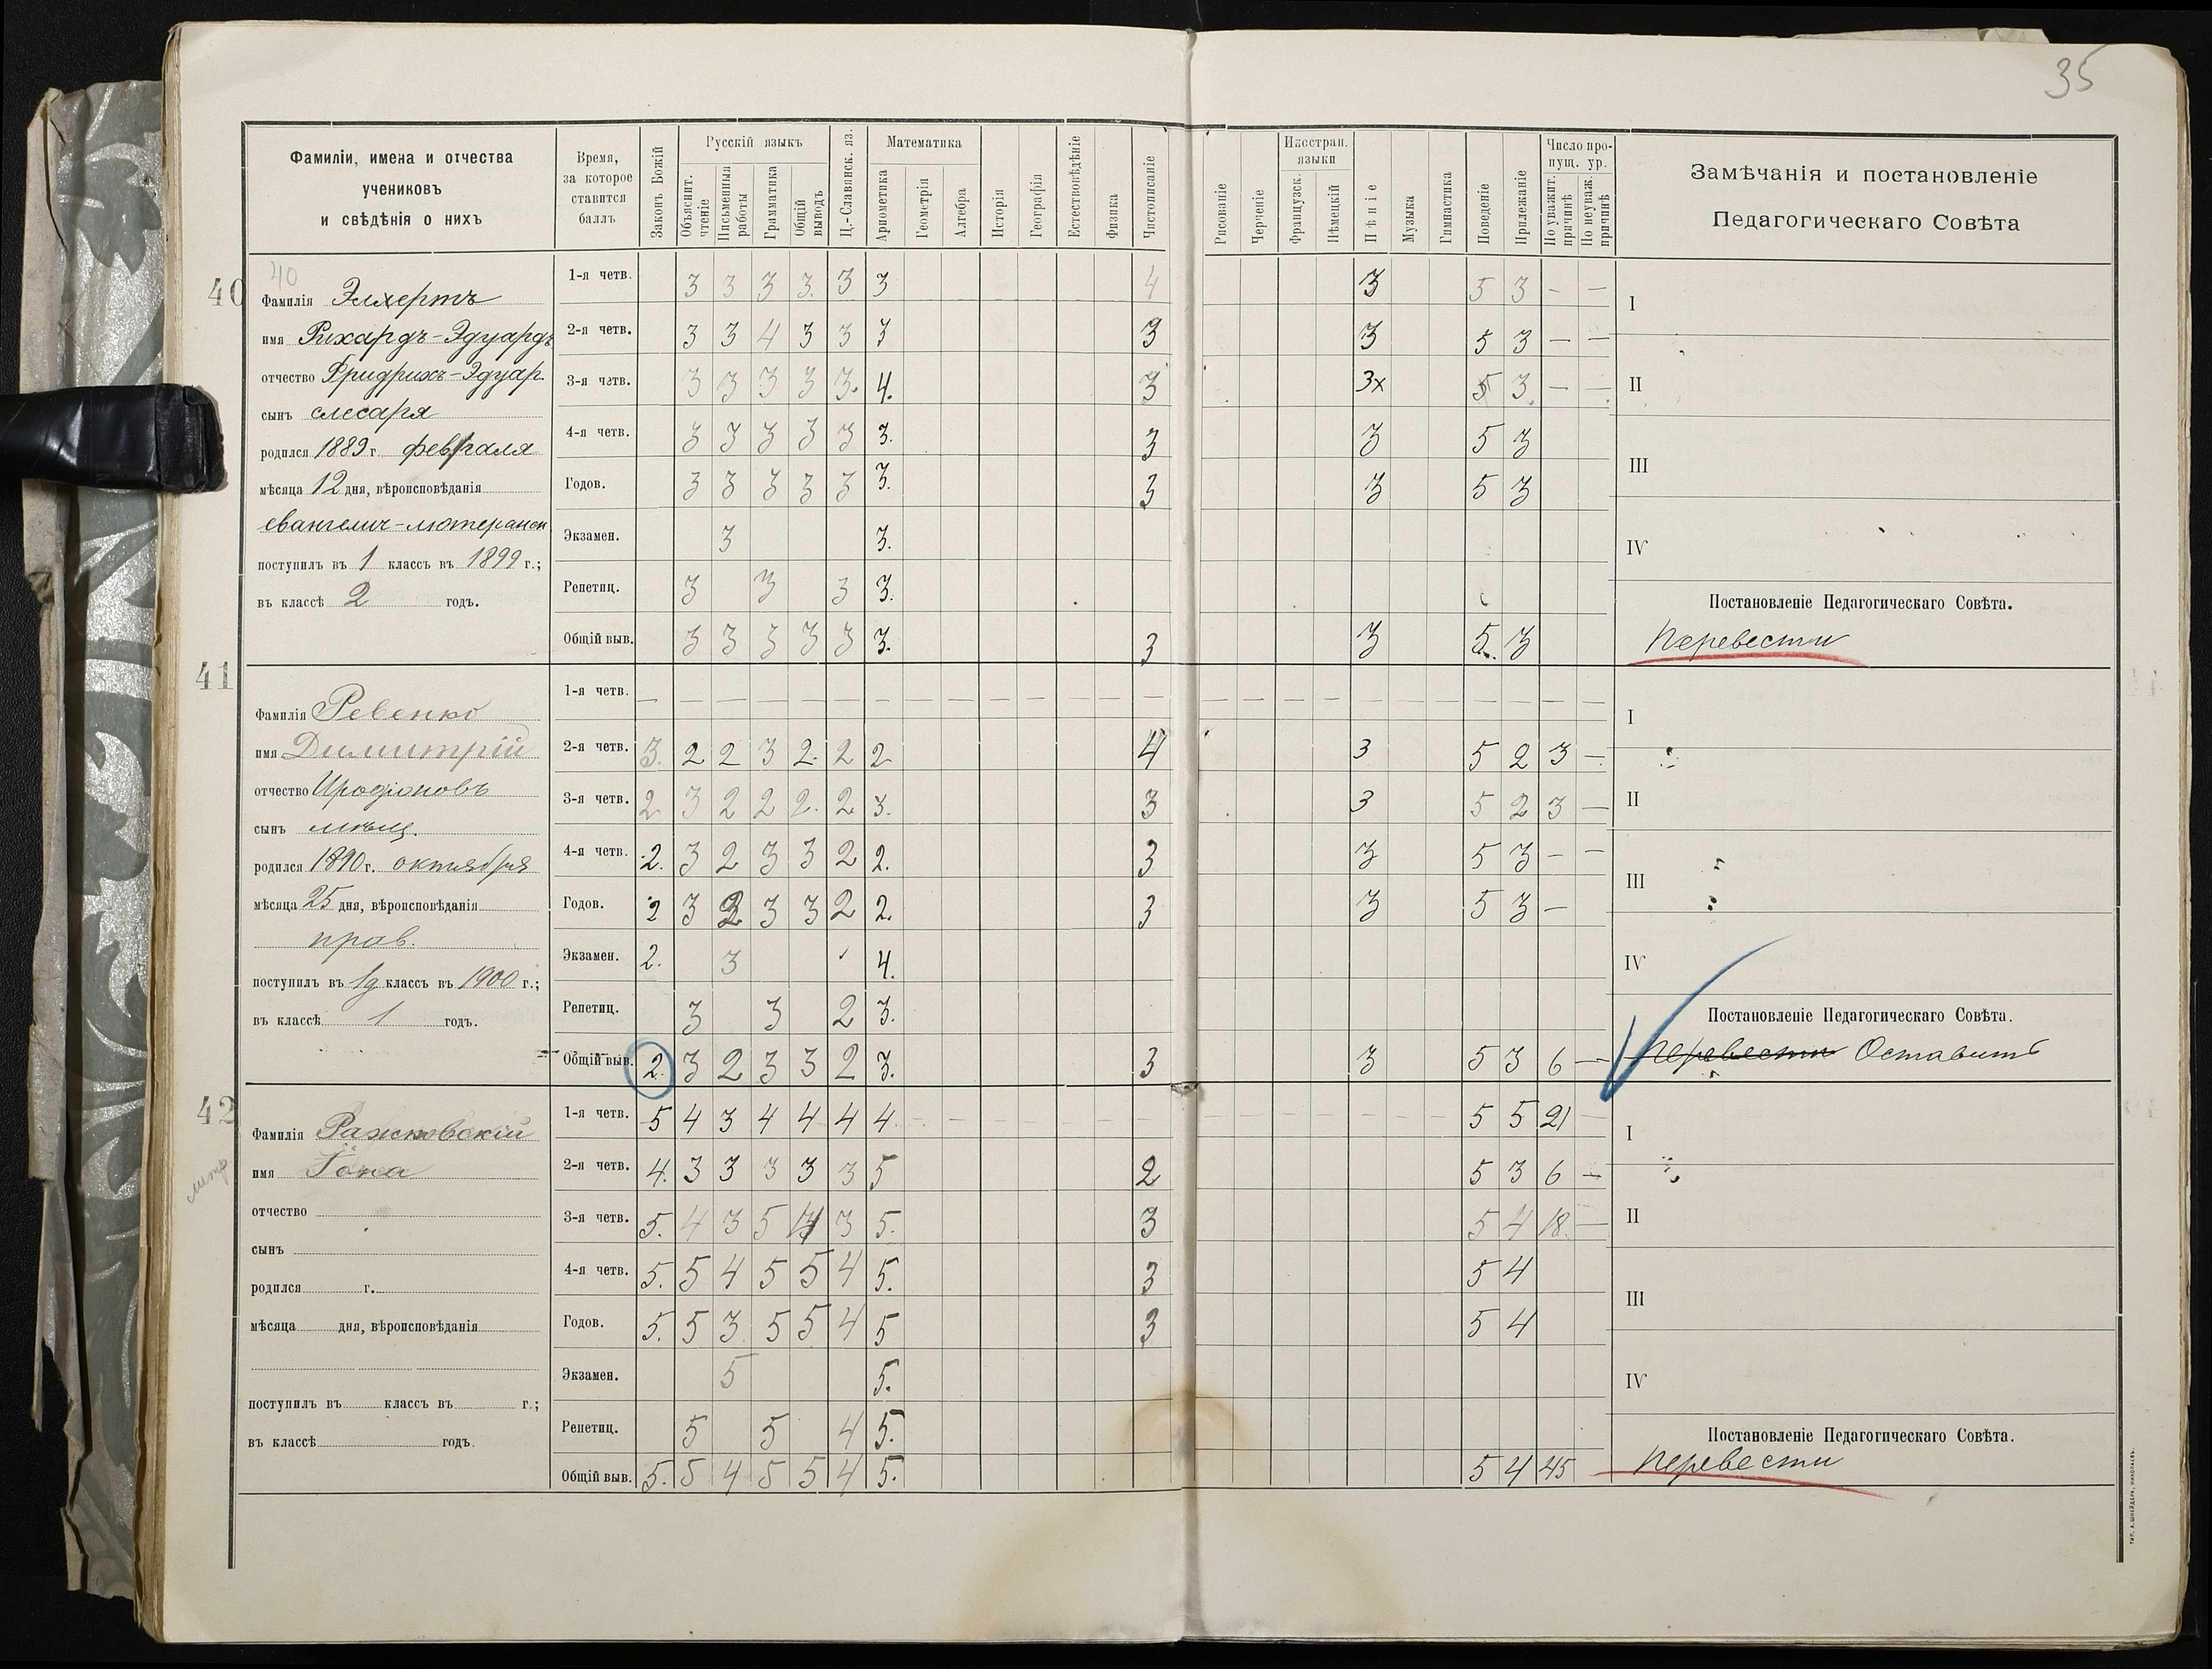 35
Фамиліи, имена и отчества
учениковъ
и свѣдѣнія о нихъ
Время,
за которое
ставится
баллъ
Законъ Божій
Русскій языкъ
Объяснит. чтеніе
Письменныя работы
Грамматика
Общій выводъ
Ц.-Славянск. яз.
Математика
Ариѳметика
Геометрія
Алгебра
Исторія
Географія
Естествовѣдѣніе
Физика
Чистописаніе
Рисованіе
Черченіе
Иностран. языки
Французск.
Нѣмецкій
Пѣніе
Музыка
Гимнастика
Поведеніе
Прилежаніе
Число пропущ. ур.
По уважит. причинѣ
По неуваж. причинѣ
Замѣчанія и постановленіе
Педагогическаго Совѣта
40
40
Фамилія Элхертъ
имя Рихардъ-Эдуардъ
отчество Фридрихъ-Эдуар.
сынъ слесаря
родился 1889 г. февраля
мѣсяца 12 дня, вѣроисповѣданія
евангелич-лютеранск
поступилъ въ 1 классъ въ 1899 г.;
въ классѣ 2 годъ.
1-я четв. 3 3 3 3. 3 3 4 3 5 3 — —
2-я четв. 3 3 4 3 3 3 3 3 5 3 — —
3-я четв. 3 3 3 3 3. 4. 3 3х 5 3 — —
4-я четв. 3 3 3 3 3 3. 3 3 5 3
Годов. 3 3 3 3 3 3. 3 3 5 3
Экзамен. 3 3.
Репетиц. 3 3 3 3.
Общій выв. 3 3 3 3 3 3. 3 3 5. 3
I
II
III
IV
Постановленіе Педагогическаго Совѣта.
Перевести
41
Фамилія Ревенко
имя Димитрій
отчество Иродіоновъ
сынъ мѣщ.
родился 1890 г. октября
мѣсяца 25 дня, вѣроисповѣданія
прав.
поступилъ въ 1й классъ въ 1900 г.;
въ классѣ 1 годъ.
1-я четв. — — — — — — — — — — — — — — — — — — — — — — — — —
2-я четв. 3. 2 2 3 2. 2 2 4 3 5 2 3 —
3-я четв. 2 3 2 2 2. 2 3. 3 3 5 2 3 —
4-я четв. 2. 3 2 3 3 2 2. 3 3 5 3 — —
Годов. 2 3 2 3 3 2 2. 3 3 5 3 —
Экзамен. 2. 3 4.
Репетиц. 3 3 2 3.
Общій выв. 2. 3 2 3 3 2 3. 3 3 5 3 6 —
I
II
III
IV
Постановленіе Педагогическаго Совѣта.
Перевести Оставить
42
Фамилія
имя Іона
отчество
сынъ
родился г.
мѣсяца дня, вѣроисповѣданія
поступилъ въ классъ въ г.;
въ классѣ годъ.
метр
1-я четв. 5 4 3 4 4 4 4 — — — — — — — — — — — — — — 5 5 21 —
2-я четв. 4. 3 3 3 3 3 5 2 5 3 6 —
3-я четв. 5. 4 3 5 4 3 5. 3 5 4 18. —
4-я четв. 5. 5 4 5 5 4 5. 3 5 4
Годов. 5. 5 3 5 5 4 5 3 5 4
Экзамен. 5 5.
Репетиц. 5 5 4 5.
Общій выв. 5. 5 4 5 5 4 5. 5 4 45
I
II
III
IV
Постановленіе Педагогическаго Совѣта.
Перевести
ТИП. А. ШНЕЙДЕРА, НИКОЛАЕВЪ.